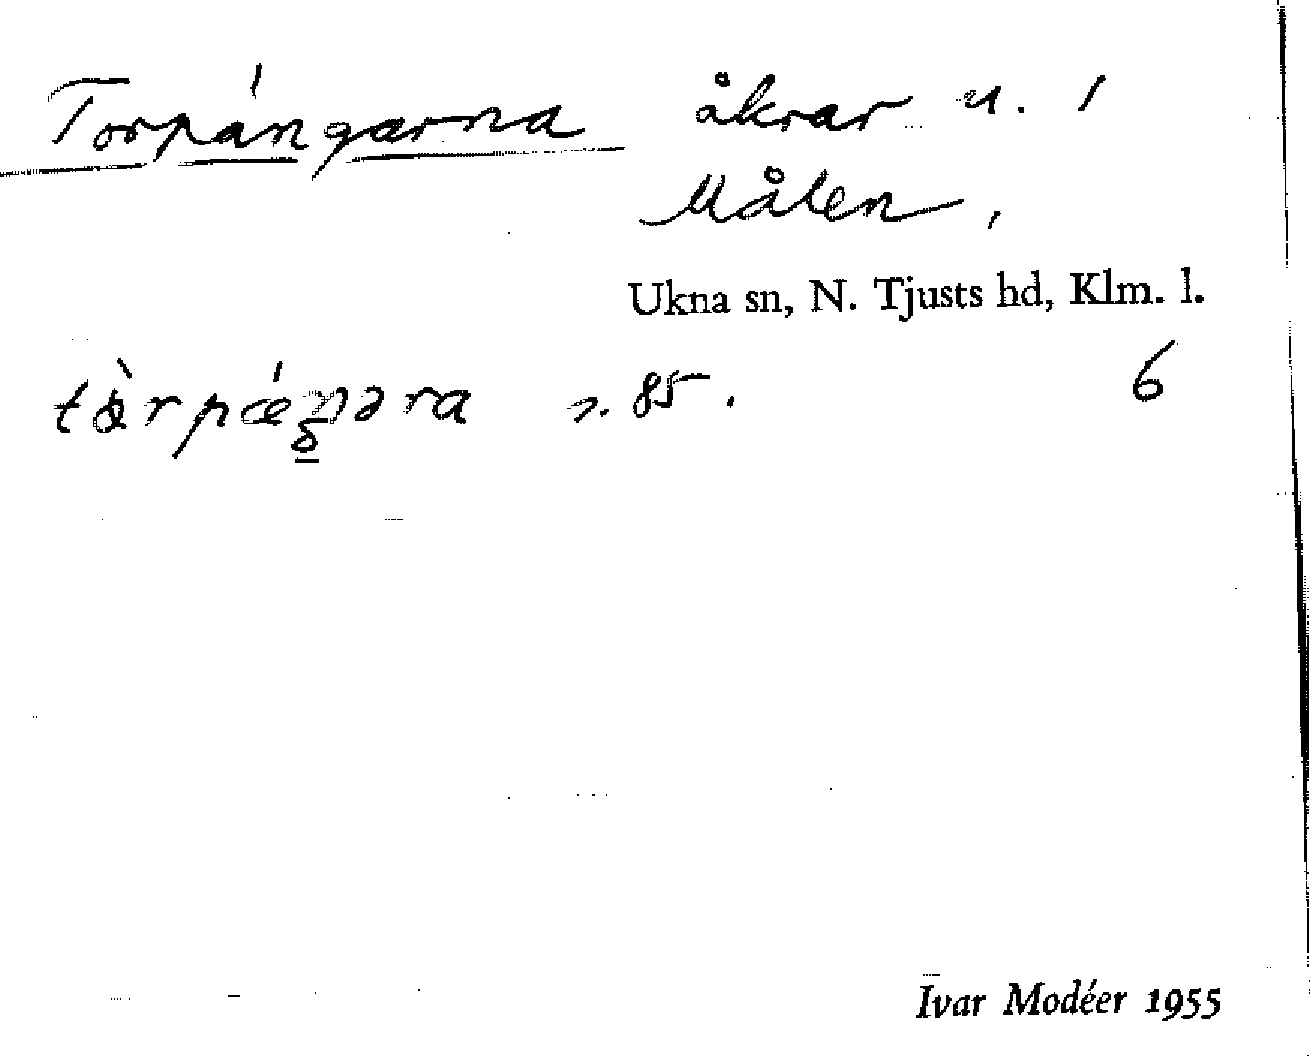 Torpängarna åkrar u. 1
Målen,
Ukna sn, N. Tjusts hd, Klm. l.
s. 85. 6
Ivar Modéer 1955